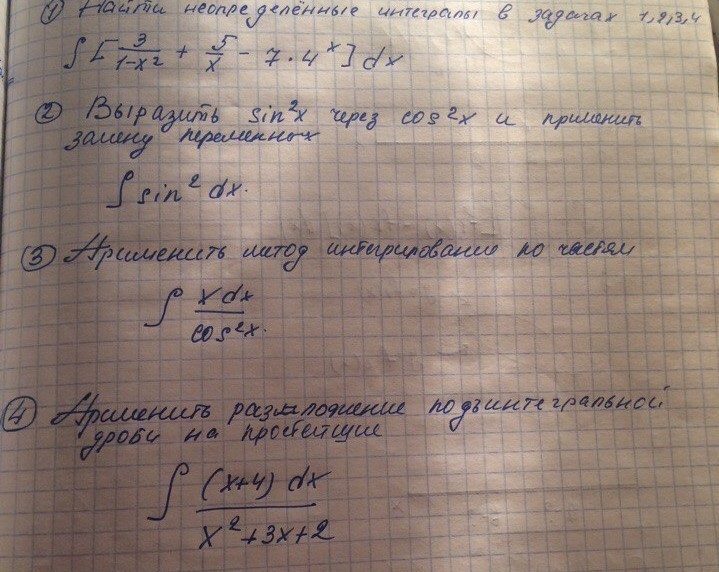 ① Найти неопределённые интегралы в задачах 1,2,3,4
∫[3/(1-x²) + 5/x - 7·4ˣ]dx
② Выразить sin²x через cos²x и применить
замену переменных
∫ sin² dx.
③ Применить метод интегрирование по частям
∫ x dx / cos²x.
④ Применить разложение подъинтегральной
дроби на простейшие
∫ (x+4) dx / x²+3x+2